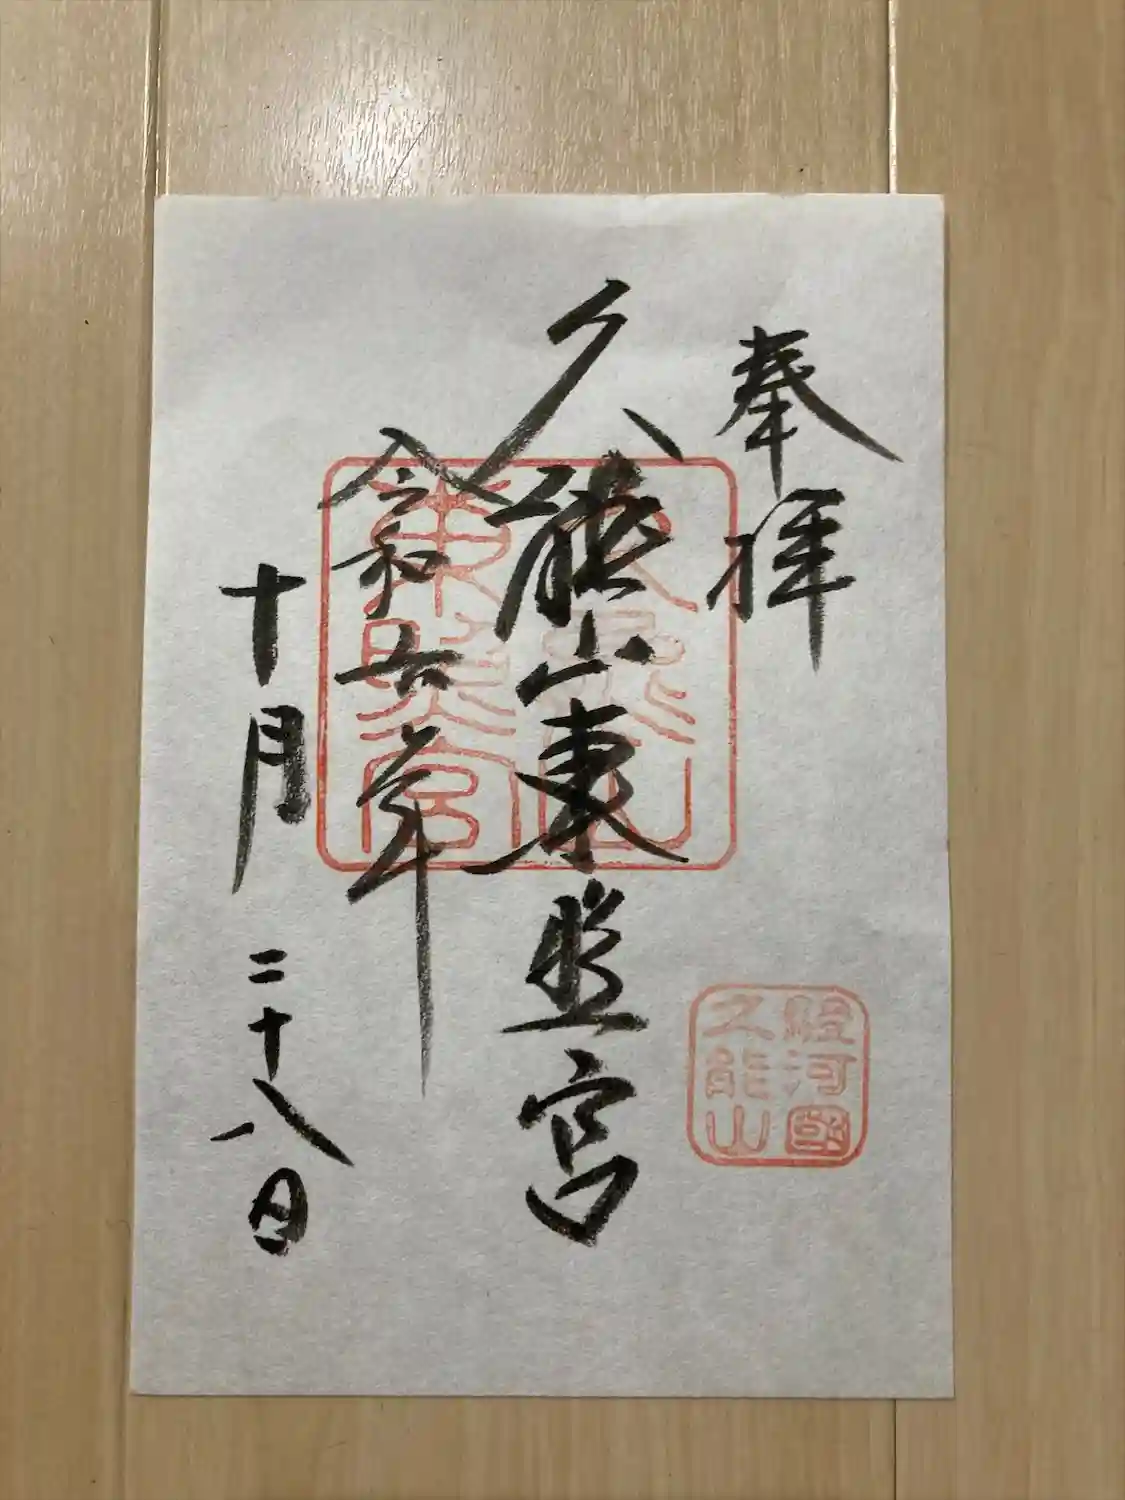 奉拝
久能山東照宮
令和六年
十月二十八日
久能山
東照宮
駿河國
久能山